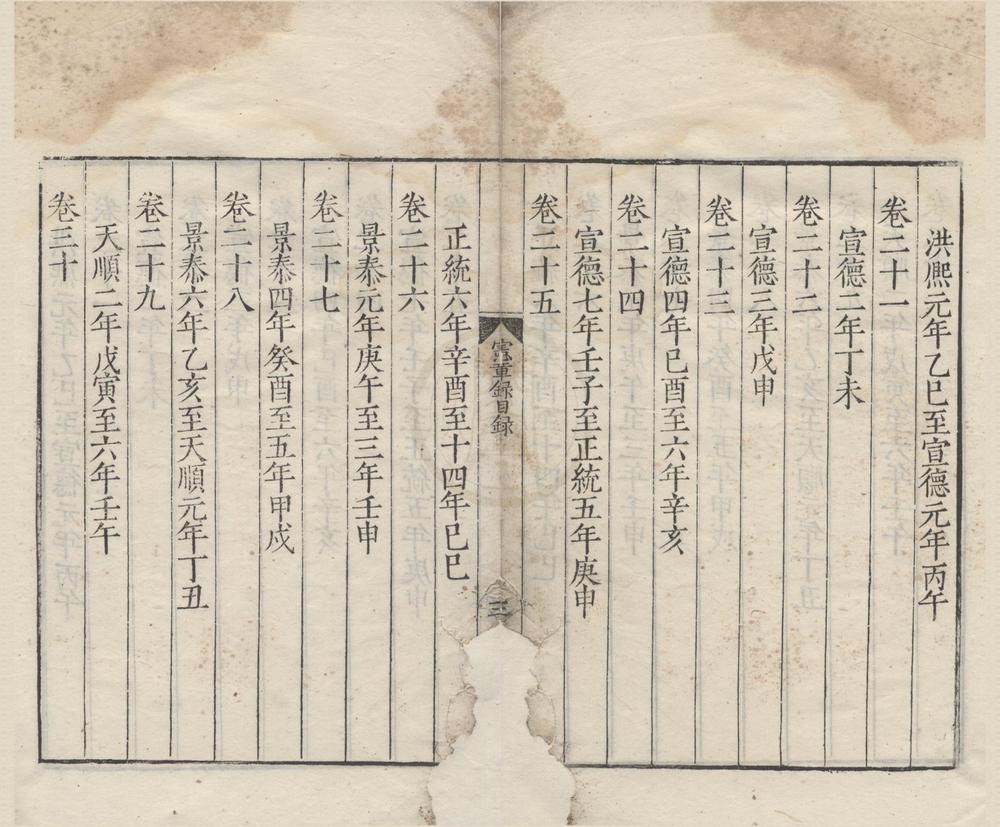 洪熈元年乙巳至宣德元年丙午
卷二十一
宣德二年丁未
卷二十二
宣德三年戊申
卷二十三
宣德四年己酉至六年辛亥
卷二十四
宣德七年壬子至正統五年庚申
卷二十五
憲章録目録
三
正統六年辛酉至十四年己巳
卷二十六
景泰元年庚午至三年壬申
卷二十七
景泰四年癸酉至五年甲戌
卷二十八
景泰六年乙亥至天順元年丁丑
卷二十九
天順二年戊寅至六年壬午
卷三十